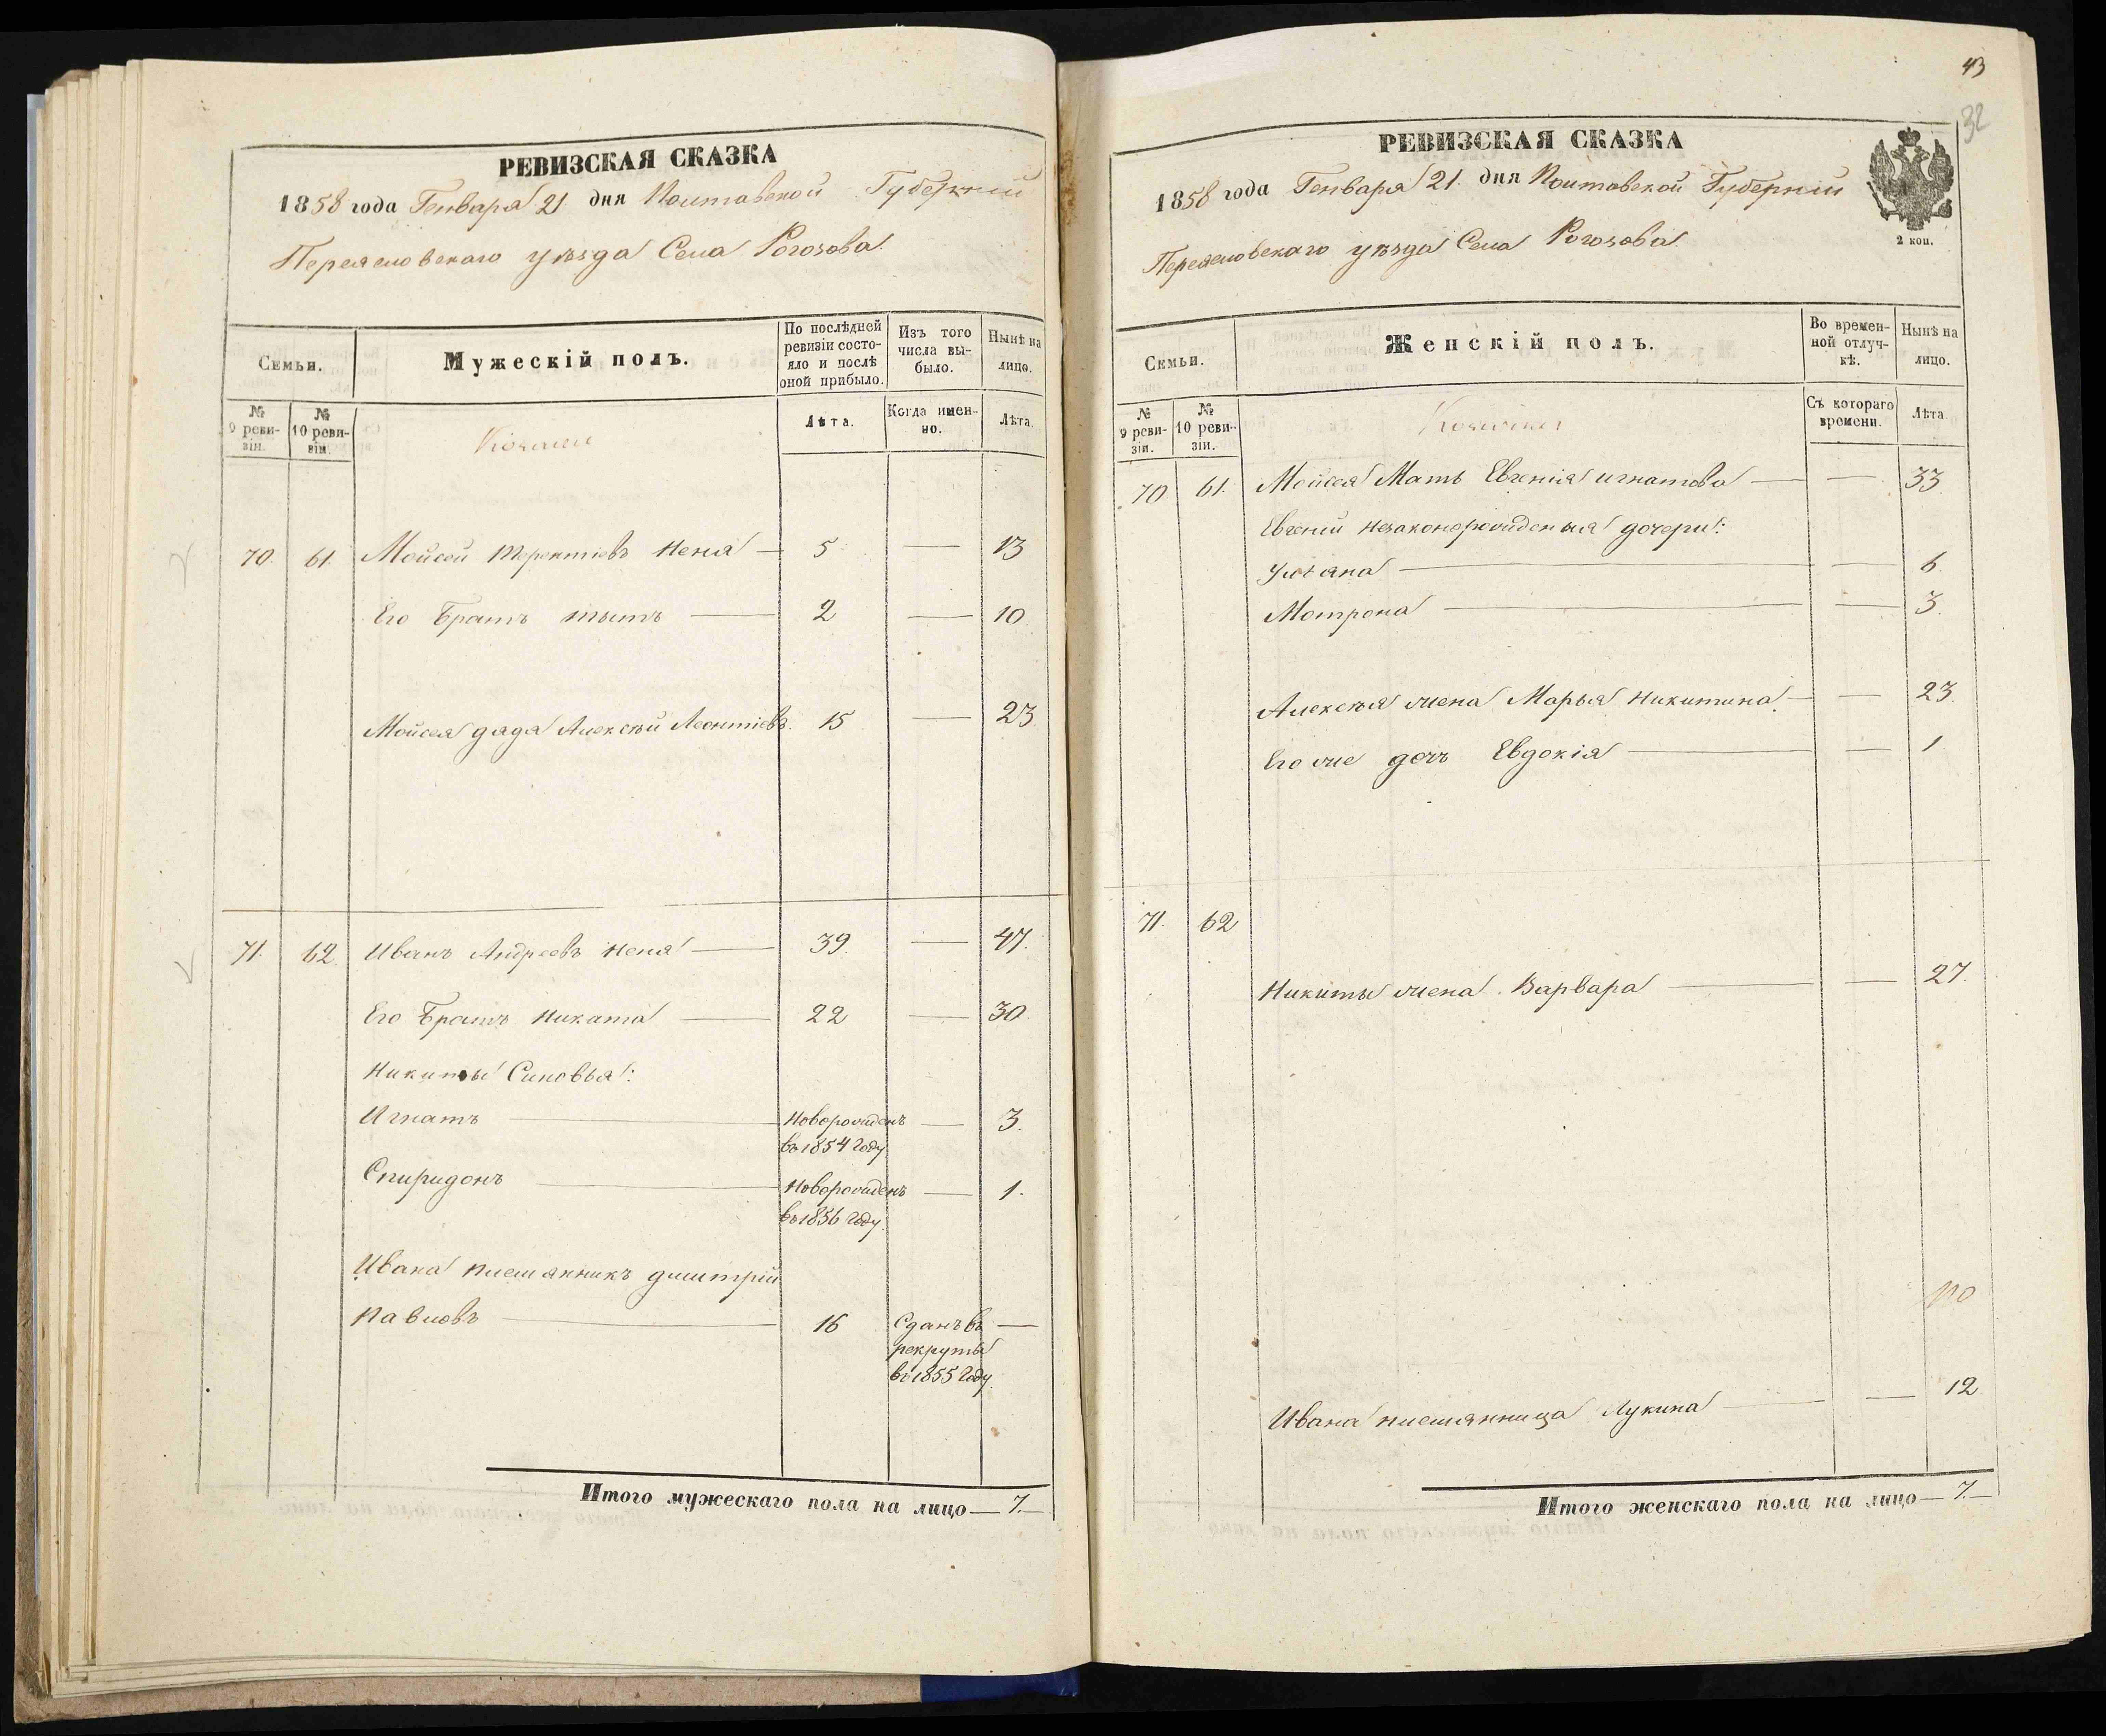 РЕВИЗСКАЯ СКАЗКА
1858 года Генваря 21 дня Полтавской Губерніи
Переяславскаго уѣзда Села Рогозова
Семьи.
Мужескій полъ.
По послѣдней ревизіи состояло и послѣ оной прибыло.
Изъ того числа выбыло.
Нынѣ на лицо.
№ 9 ревизіи.
№ 10 ревизіи.
Козаки
Лѣта.
Когда именно.
Лѣта.
70. 61. Мойсей Терентіевъ Неня — 5 — 13
Его Братъ Титъ — 2 — 10.
Мойсея дядя Алексѣй Леонтіевъ. 15 — 23
71. 62. Иванъ Андреевъ Неня — 39. — 47.
Его Братъ Никита — 22 — 30.
Никиты Синовья:
Игнатъ — Новорожденъ — 3.
въ 1854 году.
Спиридонъ — Новорожденъ — 1.
въ 1856 году.
Ивана племянникъ Дмитрій
Павловъ — 16 Сданъ въ —
рекруты
въ 1855 году.
Итого мужескаго пола на лицо — 7. —
43
32
РЕВИЗСКАЯ СКАЗКА
1858 года Генваря 21. дня Полтавской Губерніи
2 коп.
Переяславскаго уѣзда Села Рогозова
Семьи.
Женскій полъ.
Во временной отлучкѣ.
Нынѣ на лицо.
№ 9 ревизіи.
№ 10 ревизіи.
Козачки
Съ котораго времени.
Лѣта.
70 61. Мойсея Мать Евгенія Игнатова — — 33
Евгеніи незаконорожденыя дочери:
Уліяна — — 6.
Мотрона — — 3.
Алексѣя жена Марья Никитина — — 23.
Его же дочь Евдокія — — 1
71. 62
Никиты жена Варвара — — 27.
110
Ивана племянница Лукина — — 12
Итого женскаго пола на лицо — 7. —